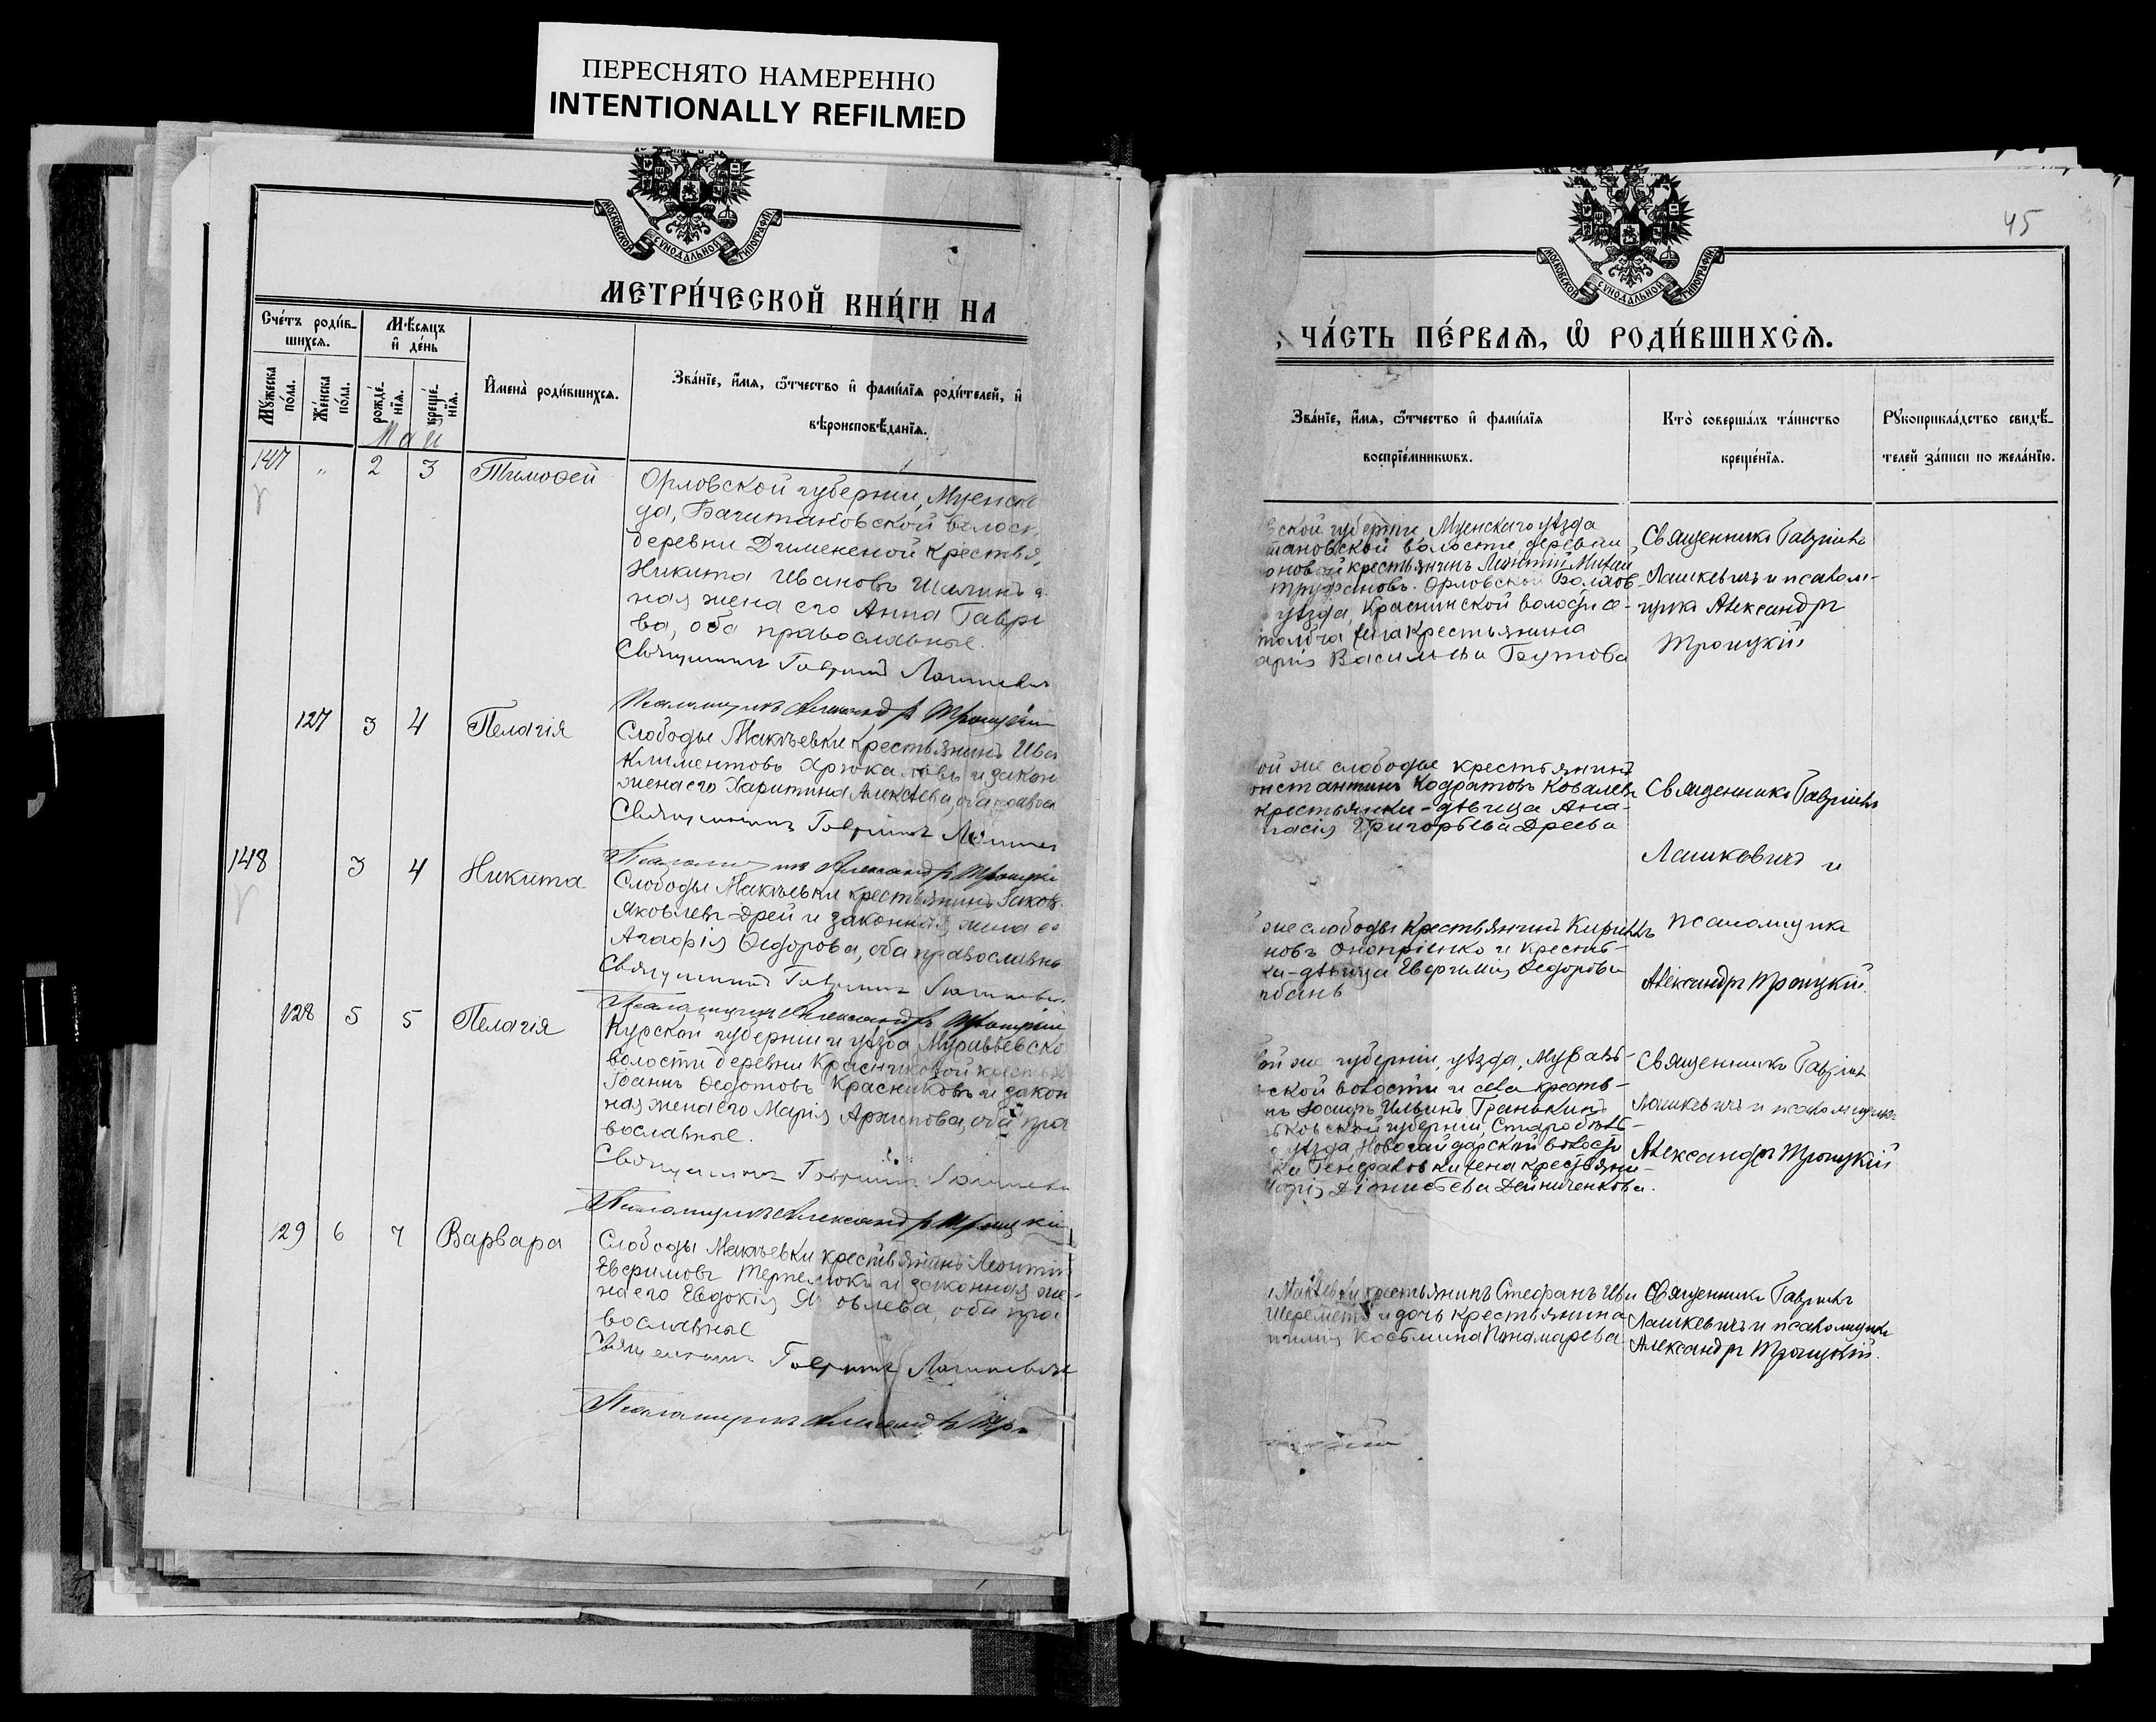 ПЕРЕСНЯТО НАМЕРЕННО
INTENTIONALLY REFILMED
МОСКОВСКОЙ СѴНОДАЛЬНОЙ ТИПОГРАФІИ
МЕТРИ́ЧЕСКОЙ КНИ́ГИ НА
Сче́тъ роди́в-
шихсѧ.
Мѣ́сѧцъ
и҆ де́нь
Мꙋ́жеска
по́ла.
Же́нска
по́ла.
рожде́-
нїѧ.
креще́-
нїѧ.
И҆мена̀ роди́вшихсѧ.
Зва́нїе, и҆́мѧ, ѻ҆́тчество и҆ фами́лїѧ роди́телей, и҆
вѣроисповѣ́данїѧ.
Май
147 „ 2 3 Тимофей
Орловской губерніи, Мценск
да, волост
деревни крестья
Никита Ивановъ
ная жена его Анна Гаври
ва, оба православные.
Священникъ Гавріилъ Лашкевич
Псаломщикъ Александръ Троицкій
127 3 4 Пелагія
Слободы Макѣевки крестьянинъ Ива
Климентовъ и закон
жена его Харитина Алексѣева, оба правос
Священникъ Гавріилъ Лашкев
Псаломщикъ Александръ Троицкі
148 3 4 Никита
Слободы Макѣевки крестьянинъ Іаков
Яковлевъ Дрей и законная жена е
Агафія Ѳедорова, оба православны
Священникъ Гавріилъ Лашкевич
Псаломщикъ Александръ Троицкій
128 5 5 Пелагія
Курской губерніи и уѣзда Муравьевско
волости деревни Красниковой крестья
Іоаннъ Ѳедотовъ Красниковъ и закон
ная жена его Марія Архипова, оба пра
вославные.
Священникъ Гавріилъ Лашкеви
Псаломщикъ Александръ Троицкі
129 6 7 Варвара
Слободы Макѣевки крестьянинъ Леонтій
Евфимовъ и законная же-
на его Евдокія Яковлева, оба пра
вославные
Священникъ Гавріилъ Лашкевич
Псаломщикъ Александръ Тро
45
МОСКОВСКОЙ СѴНОДАЛЬНОЙ ТИПОГРАФІИ
, ЧА́СТЬ ПЕ́РВАѦ, Ѡ҆ РОДИ́ВШИХСѦ.
Зва́нїе, и҆́мѧ, ѻ҆́тчество и҆ фами́лїѧ
воспрїе́мникѡвъ.
Кто̀ соверша́лъ та́инство
креще́нїѧ.
Рꙋкоприкла́дство свидѣ́-
телей за́писи по жела́нїю.
вской губерніи Мценскаго уѣзда
тановской волости, деревни
оновой крестьянинъ
Труфановъ. Орловской Болхов-
уѣзда, Краснинской волости с-
жена крестьянина
арія Васильева Бутова
Священникъ Гавріилъ
Лашкевичъ и псалом-
щикъ Александръ
Троицкій
ой же слободы крестьянинъ
онстантинъ Кодратовъ Ковалевъ
крестьянки-дѣвица Ана-
тасія Григорьева Дреева
Священникъ Гавріилъ
Лашкевичъ и
же слободы крестьянинъ Кириллъ
новъ Онопріенко и кресть-
ка-дѣвица Евфимія Ѳедорова
рбань
псаломщикъ
Александръ Троицкій.
ой же губерніи, уѣзда, Муравь-
ской волости и села кресть-
нъ Іосифъ Ильинъ Гранкинъ
ьковской губерніи, Старобѣль-
уѣзда, Новоайдарской волости
жена крестьяни-
арія Діонисьева Дейниченкова.
Священникъ Гавріилъ
Лашкевичъ и псаломщикъ
Александръ Троицкій
Макѣевки крестьянинъ Стефанъ Ива
Шереметъ и дочь крестьянина
Косьмина Понамарева
Священникъ Гавріилъ
Лашкевичъ и псаломщикъ
Александръ Троицкій.